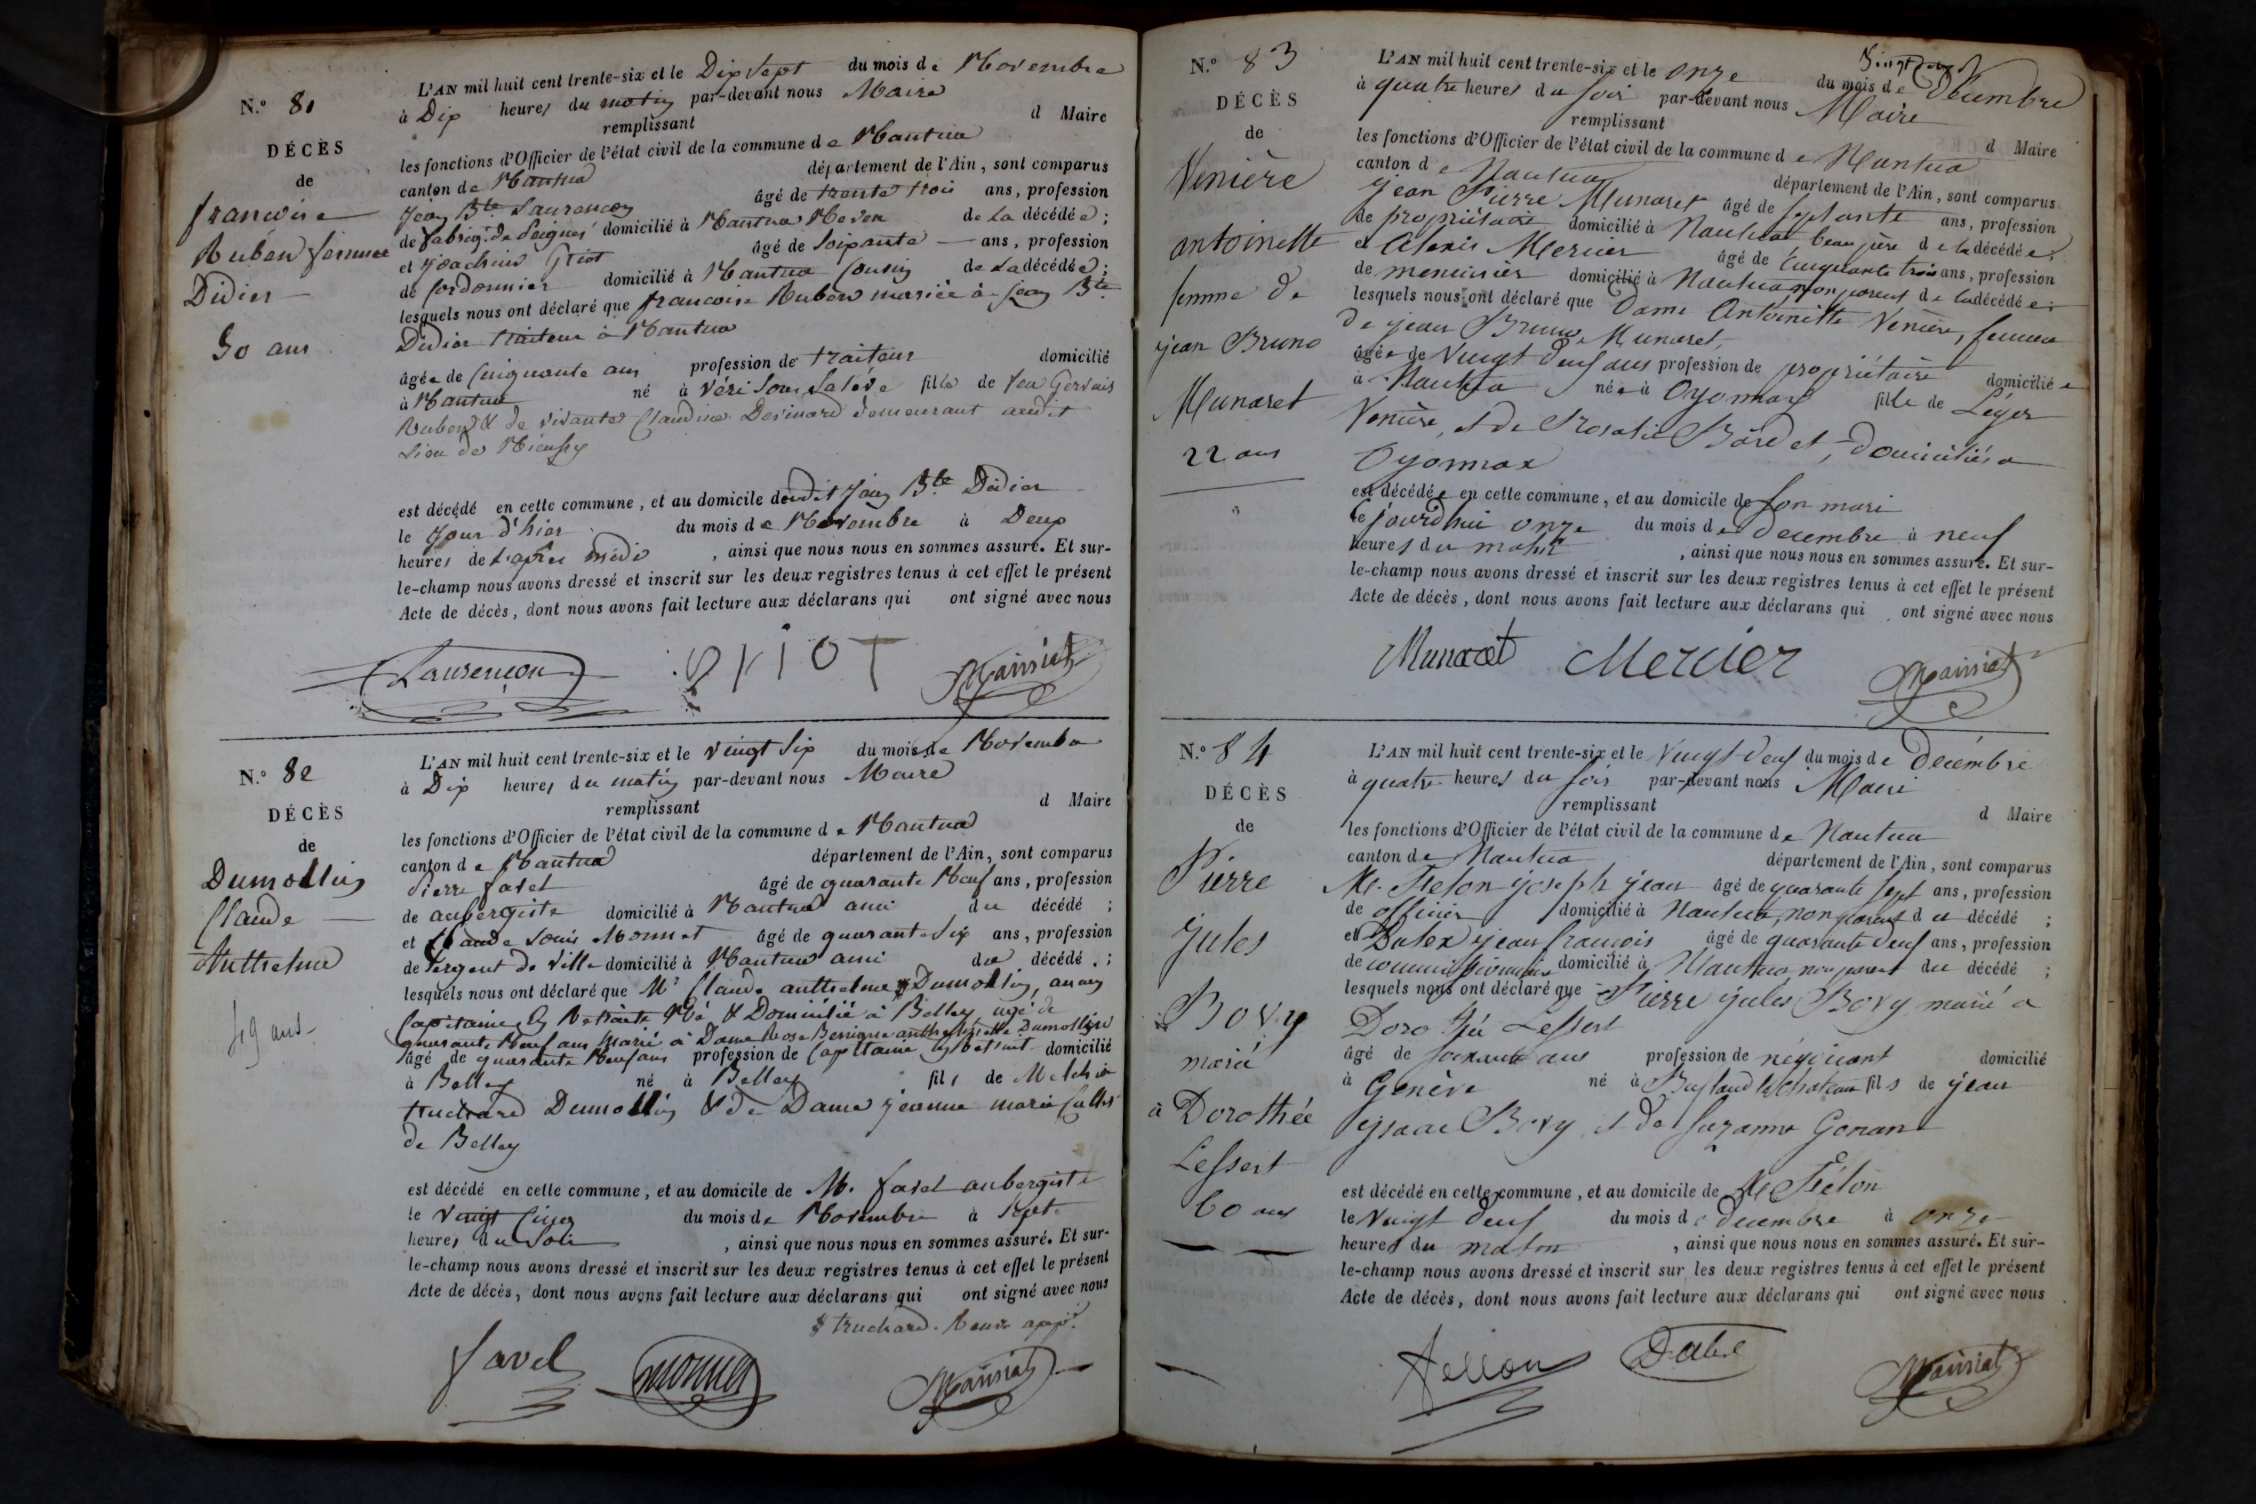 N.º 81
DÉCÈS
de
francoise
Rubéw femme
Didier
50 ans
L'AN mil huit cent trente-six et le Dix Sept du mois de Novembre
à Dix heures du matin par-devant nous Maire
remplissant d Maire
les fonctions d'Officier de l'état civil de la commune de Nantua
canton de Nantua département de l'Ain, sont comparus
Jean Bte Laurencon âgé de trente trois ans, profession
de fabriqt de Peignes domicilié à Nantua Neveu de La décédée;
et Joachim Griot âgé de Soixante ans, profession
de Cordonnier domicilié à Nantua Cousin de La décédée;
lesquels nous ont déclaré que francoise Rubew mariée à Jean Bte
Didier traiteur à Nantua
âgée de Cinquante ans profession de traiteur domicilié
à Nantua né à fille de feu Gervais
Rubew & de vivante Claudine demeurant audit
Lieu de
est décédé en cette commune, et au domicile dudit Jean Bte Didier
le Jour d'hier du mois de Novembre à Deux
heures de L'après midi, ainsi que nous nous en sommes assuré. Et sur-
le-champ nous avons dressé et inscrit sur les deux registres tenus à cet effet le présent
Acte de décès, dont nous avons fait lecture aux déclarans qui ont signé avec nous
Laurencon Griot Mainiat
N.º 82
DÉCÈS
de
Dumollin
Claude
Anthelme
49 ans
L'AN mil huit cent trente-six et le vingt Six du mois de Novembre
à Dix heures du matin par-devant nous Maire
remplissant d Maire
les fonctions d'Officier de l'état civil de la commune de Nantua
canton de Nantua département de l'Ain, sont comparus
Pierre favel âgé de quarante Neuf ans, profession
de aubergiste domicilié à Nantua ami du décédé;
et Claude Louis Monnet âgé de quarante Six ans, profession
de Sergent de Ville domicilié à Nantua ami du décédé;
lesquels nous ont déclaré que Mr Claude anthelme Dumollin, ancien
Capitaine En Retraite Né & Domicilié à Belley agé de
quarante Neuf ans Marié à Dame Rose Dumollin
âgé de quarante Neuf ans profession de Capitaine En Retraite domicilié
à Belley né à Belley fils de Melchior
truchard Dumollin & de Dame jeanne marie
de Belley
est décédé en cette commune, et au domicile de M. favel aubergiste
le Vingt Cinq du mois de Novembre à Sept
heures du Soir, ainsi que nous nous en sommes assuré. Et sur-
le-champ nous avons dressé et inscrit sur les deux registres tenus à cet effet le présent
Acte de décès, dont nous avons fait lecture aux déclarans qui ont signé avec nous
truchard. Renvoi appé.
favel monnet Mainiat
N.º 83
DÉCÈS
de
Venière
antoinette
femme de
jean Bruno
Munaret
22 ans
L'AN mil huit cent trente-six et le onze du mois de Décembre
à quatre heures du soir par-devant nous Maire
remplissant d Maire
les fonctions d'Officier de l'état civil de la commune de Nantua
canton de Nantua département de l'Ain, sont comparus
jean Pierre Munaret âgé de Septante ans, profession
de propriétaire domicilié à Nantua beau père de la décédée;
et Alexis Mercier âgé de Cinquante trois ans, profession
de menuisier domicilié à Nantua non parent de la décédée;
lesquels nous ont déclaré que Dame Antoinette Venière, femme
de jean Bruno Munaret,
âgée de Vingt deux ans profession de propriétaire domiciliée
à Nantua née à Oyonnax fille de Léger
Venière, et de Rosalie Bardet, domiciliés a
Oyonnax
est décédée en cette commune, et au domicile de son mari
le jourd'hui onze du mois de decembre à neuf
heures du matin, ainsi que nous nous en sommes assuré. Et sur-
le-champ nous avons dressé et inscrit sur les deux registres tenus à cet effet le présent
Acte de décès, dont nous avons fait lecture aux déclarans qui ont signé avec nous
Munaret Mercier Mainiat
N.º 84
DÉCÈS
de
Pierre
Jules
Bovy
marié
à Dorothée
Lessert
60 ans
L'AN mil huit cent trente-six et le Vingt deux du mois de Décembre
à quatre heures du soir par-devant nous Maire
remplissant d Maire
les fonctions d'Officier de l'état civil de la commune de Nantua
canton de Nantua département de l'Ain, sont comparus
Mr. joseph jean âgé de quarante sept ans, profession
de officier domicilié à Nantua, non parent du décédé;
et jean francois âgé de quarante deux ans, profession
de commissionnaire domicilié à Nantua non parent du décédé;
lesquels nous ont déclaré que Pierre jules Bovy marié a
Dorothée Lessert
âgé de soixante ans profession de négociant domicilié
à Genève né à fils de jean
isaac Bovy et de Suzanne Gonan
est décédé en cette commune, et au domicile de Mr
le Vingt deux du mois de decembre à onze
heures du matin, ainsi que nous nous en sommes assuré. Et sur-
le-champ nous avons dressé et inscrit sur les deux registres tenus à cet effet le présent
Acte de décès, dont nous avons fait lecture aux déclarans qui ont signé avec nous
Mainiat